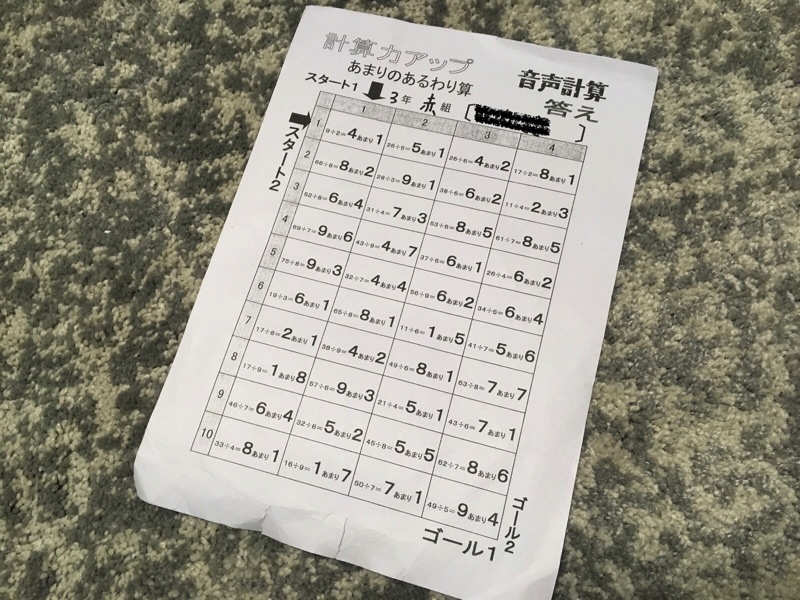 計算力アップ
あまりのあるわり算
音声計算
答え
スタート1
3年 赤 組 [ ]
スタート2
1 2 3 4
1 9÷2=4あまり1 26÷5=5あまり1 26÷6=4あまり2 17÷2=8あまり1
2 66÷8=8あまり2 28÷3=9あまり1 38÷6=6あまり2 11÷4=2あまり3
3 52÷8=6あまり4 31÷4=7あまり3 53÷6=8あまり5 61÷7=8あまり5
4 69÷7=9あまり6 43÷9=4あまり7 37÷6=6あまり1 26÷4=6あまり2
5 75÷8=9あまり3 32÷7=4あまり4 56÷9=6あまり2 34÷5=6あまり4
6 19÷3=6あまり1 65÷8=8あまり1 11÷6=1あまり5 41÷7=5あまり6
7 17÷8=2あまり1 38÷9=4あまり2 49÷6=8あまり1 63÷8=7あまり7
8 17÷9=1あまり8 57÷6=9あまり3 21÷4=5あまり1 43÷6=7あまり1
9 46÷7=6あまり4 32÷6=5あまり2 45÷8=5あまり5 62÷7=8あまり6
10 33÷4=8あまり1 16÷9=1あまり7 50÷7=7あまり1 49÷5=9あまり4
ゴール1
ゴール2